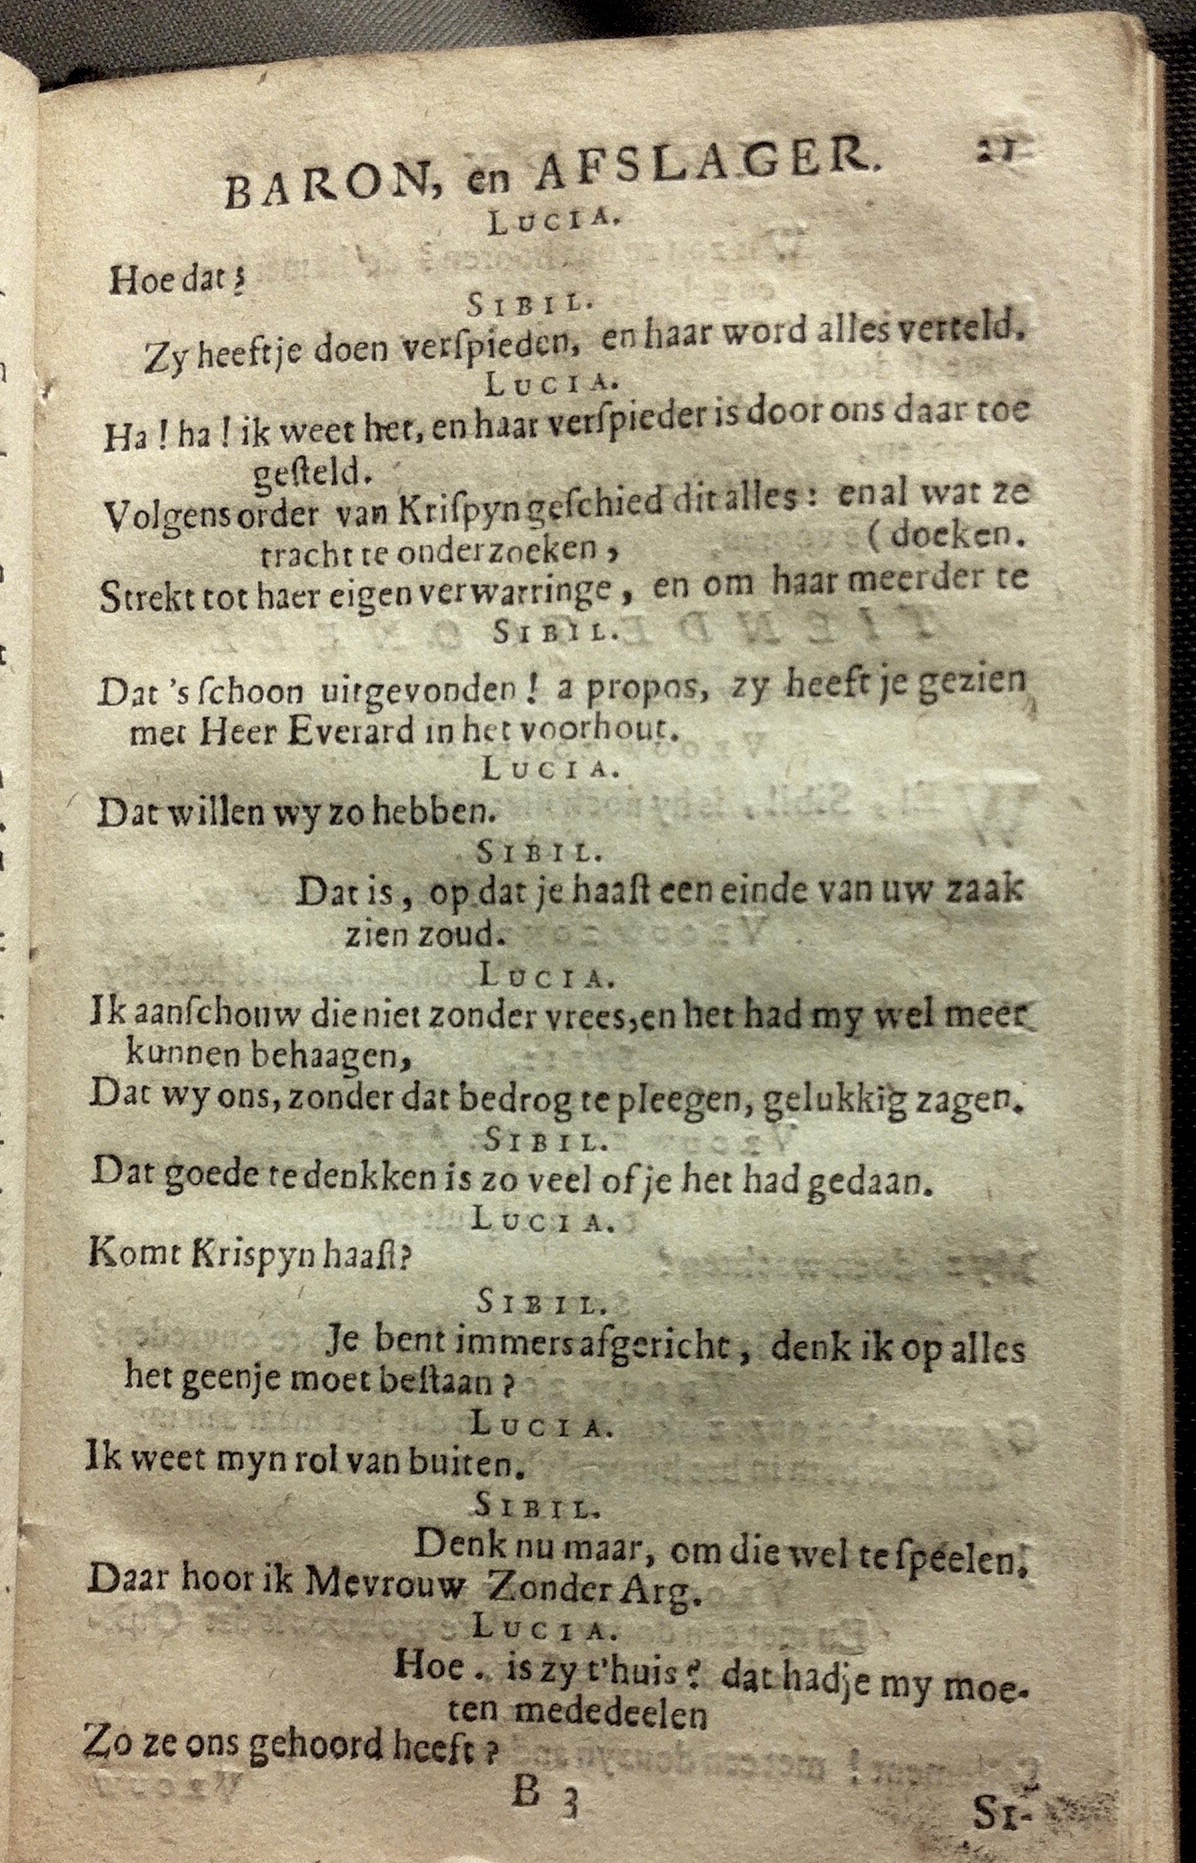 BARON, en AFSLAGER. 21
LUCIA.
Hoe dat?
SIBIL.
Zy heeft je doen verſpieden, en haar word alles verteld.
LUCIA.
Ha! ha! ik weet het, en haar verſpieder is door ons daar toe
geſteld.
Volgens order van Kriſpyn geſchied dit alles: en al wat ze
tracht te onderzoeken, (doeken.
Strekt tot haer eigen verwarringe, en om haar meerder te
SIBIL.
Dat 's ſchoon uitgevonden! a propos, zy heeft je gezien
met Heer Everard in het voorhout.
LUCIA.
Dat willen wy zo hebben.
SIBIL.
Dat is, op dat je haaſt een einde van uw zaak
zien zoud.
LUCIA.
Ik aanſchouw die niet zonder vrees, en het had my wel meer
kunnen behaagen,
Dat wy ons, zonder dat bedrog te pleegen, gelukkig zagen.
SIBIL.
Dat goede te denkken is zo veel of je het had gedaan.
LUCIA.
Komt Krispyn haaſt?
SIBIL.
Je bent immers afgericht, denk ik op alles
het geen je moet beſtaan?
LUCIA.
Ik weet myn rol van buiten.
SIBIL.
Denk nu maar, om die wel te ſpeelen.
Daar hoor ik Mevrouw Zonder Arg.
LUCIA.
Hoe. is zy t'huis? dat had je my moe-
ten mededeelen
Zo ze ons gehoord heeft?
B 3
SI-